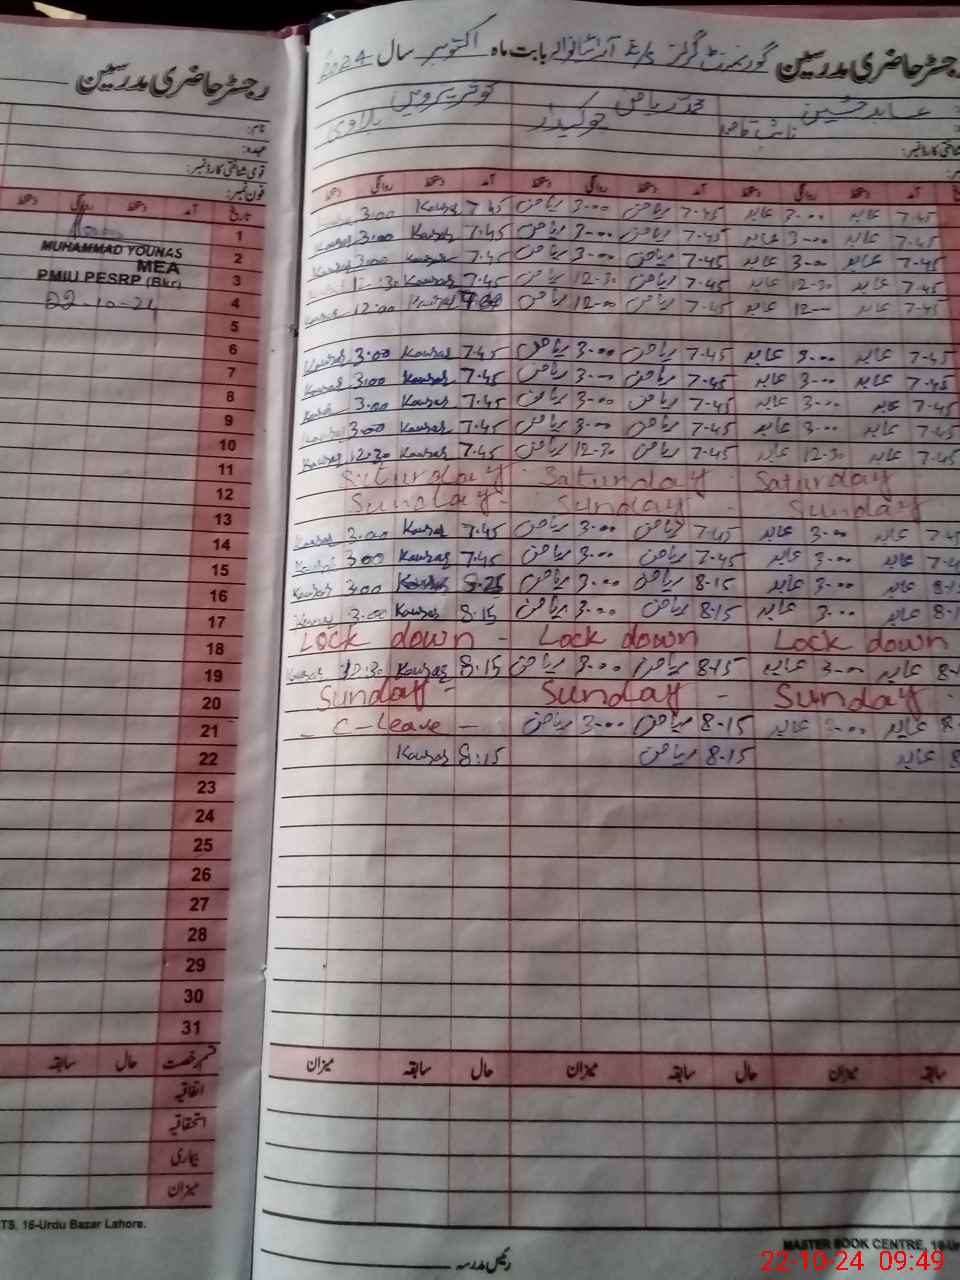 رجسٹر حاضری مدرسین
نام:
عہدہ:
قومی شناختی کارڈ نمبر:
فون نمبر:
تاریخ آمد دستخط روانگی دستخط
1
2
3
4
5
6
7
8
9
10
11
12
13
14
15
16
17
18
19
20
21
22
23
24
25
26
27
28
29
30
31
MUHAMMAD YOUNAS
MEA
PMIU PESRP (Bkr)
22-10-24
قسم رخصت حال سابقہ
اتفاقیہ
استحقاقیہ
بیماری
میزان
TS. 16-Urdu Bazar Lahore.
رجسٹر حاضری مدرسین گورنمنٹ گرلز بابت ماہ اکتوبر سال 2024
عابد حسین محمد ریاض کوثر پروین
نائب قاصد چوکیدار
شناختی کارڈ نمبر:
آمد دستخط روانگی دستخط آمد دستخط روانگی دستخط آمد دستخط روانگی دستخط
7-45 عابد 3-00 عابد 7-45 ریاض 3-00 ریاض 7-45 Kousar 3:00
7-45 عابد 3-00 عابد 7-45 ریاض 3-00 ریاض 7.45 Kousar 3:00 Kousar
7-45 عابد 3-00 عابد 7-45 ریاض 3-00 ریاض 7.45 Kousar 3:00 Kousar
7-45 عابد 12-30 عابد 7-45 ریاض 12-30 ریاض 7.45 Kousar 12:30
7-45 عابد 12-00 عابد 7-45 ریاض 12-00 ریاض 12:00 Kousar
7-45 عابد 3-00 عابد 7-45 ریاض 3-00 ریاض 7.45 Kousar 3:00 Kousar
7-45 عابد 3-00 عابد 7-45 ریاض 3-00 ریاض 7.45 Kousar 3:00 Kousar
7-45 عابد 3-00 عابد 7-45 ریاض 3-00 ریاض 7.45 Kousar 3:00 Kousar
7-45 عابد 3-00 عابد 7-45 ریاض 3-00 ریاض 7.45 Kousar 3:00 Kousar
7-45 عابد 12-30 عابد 7-45 ریاض 12-30 ریاض 7.45 Kousar 12:30 Kousar
Saturday - Saturday - Saturday
Sunday - Sunday - Sunday
7-45 عابد 3-00 عابد 7-45 ریاض 3-00 ریاض 7.45 Kousar 3:00 Kousar
عابد 3-00 عابد 7-45 ریاض 3-00 ریاض 7.45 Kousar 3:00 Kousar
عابد 3-00 عابد 8-15 ریاض 3-00 ریاض Kousar 3:00 Kousar
عابد 3-00 عابد 8-15 ریاض 3-00 ریاض 8:15 Kousar 3:00 Kousar
Lock down - Lock down Lock down
عابد 3-00 عابد 8-15 ریاض 3-00 ریاض 8:15 Kousar 12:30 Kousar
Sunday - Sunday - Sunday -
عابد 3-00 عابد 8-15 ریاض 3-00 ریاض - C-Leave -
عابد 8-15 ریاض 8:15 Kousar
سابقہ میزان حال سابقہ میزان حال سابقہ میزان
رئیس مدرسہ
MASTER BOOK CENTRE, 16-Ur
22-10-24 09:49